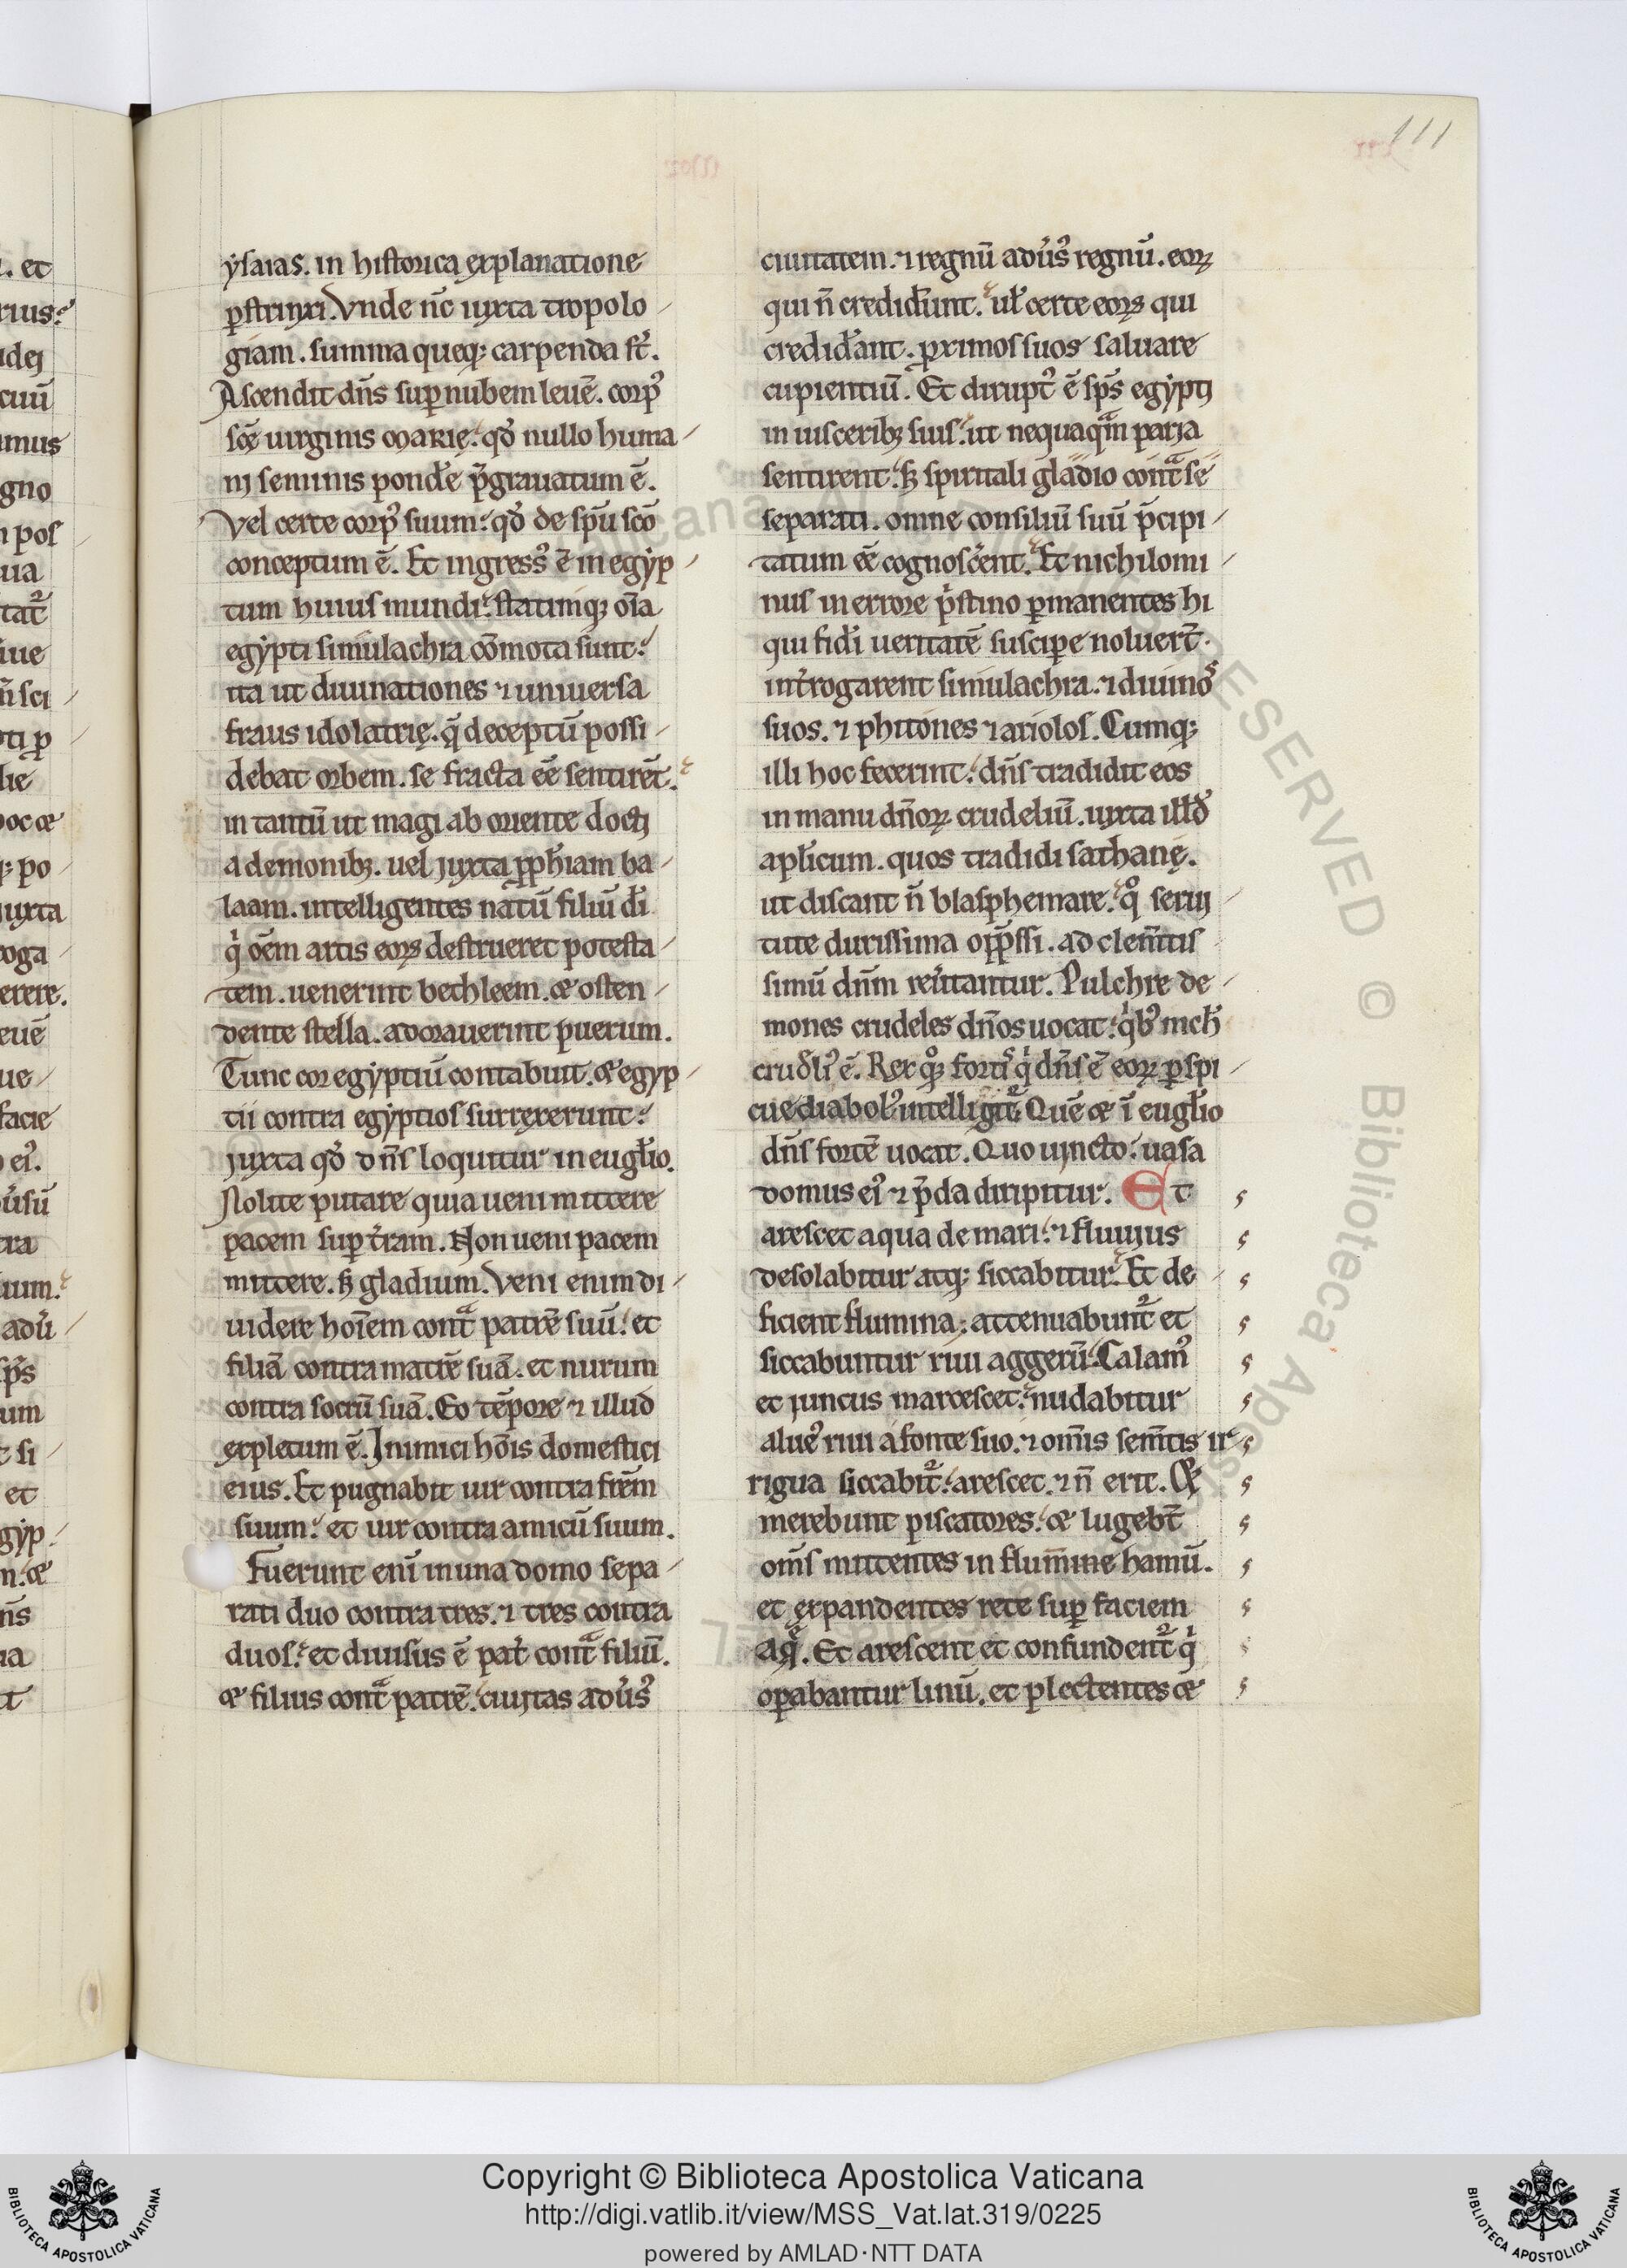 111
ẏsaias. in historica explanatione
ꝑstrinxi. Vnde nc̄ iuxta tropolo
giam. summa queq; carpenda st̄.
Ascendit dn̄s suꝑ nubem leuē. corpꝰ
scē uirginis MARIĘ. qd̓ nullo huma
nj seminis pond̓e p̄grauatum ē.
Vel certe corpꝰ suum. qd̓ de sp̄u scō
conceptum ē. Et ingressꝰ ē in egẏp
tum huius mundi. statimqꝫ oīa
egẏpti simulachra cōmota sunt.
ita ut diuinationes ⁊ uniuersa
fraus idolatrię. q̄ deceptū possi
debat orbem. se fracta eē sentirēt.
in tantū ut magi ab oriente doctj
a demonibꝫ. uel juxta ꝓph̄iam ba
laam. intelligentes natū filiū dī
qͥ oēm artis eoꝝ destrueret potesta
tem. uenerint bethleem. & osten
dente stella. adorauerint puerum.
Tunc cor egẏptiū contabuit. & egẏp
tii contra egẏptios surrexerunt.
juxta qd̓ dn̄s loquitur in eugl̄io.
Nolite putare quia ueni mittere
pacem suꝑ t̓ram. Non ueni pacem
mittere. sꝫ gladium. Veni enim di
uidere hoīem contᷓ patrē suū. et
filiā contra matrē suā. et nurum
contra socrū suā. Eo tēpore ⁊ illud
expletum ē. Inimici hōis domestici
eius. Et pugnabit uir contra fr̄em
suum. et uir contra amicū suum.
Fuerunt eni̅ in una domo sepa
rati duo contra tres. ⁊ tres contra
duos. et diuisus ē pat̓ contᷓ filiū.
& filius contᷓ patrē. ciuitas adu̓sꝰ
ciuitatem. ⁊ regnū adu̓sꝰ regnū. eoꝝ
qui n̄ credid̓unt. ul̓ certe eoꝝ qui
credid̓ant. ꝓximos suos saluare
cupientiū. Et diruptꝰ ē sp̄s egẏptj
in uisceribꝫ suis. ut nequaqᷓm paria
sentirent. sꝫ spiritali gladio contᷓ se
separati. omne consiliū suū p̄cipi
tatum eē cognosc̓ent. Et nichilomi
nus in errore pͥstino ꝑmanentes hi
qui fidi̓ ueritatē suscipe noluer̄t.
int̓rogarent simulachra. ⁊ diuinoˢ
suos. ⁊ phitones ⁊ ariolos. Cumq;
illi hoc fecerint. dn̄s tradidit eos
in manu dn̄oꝝ crudeliū. iuxta illd̓
apl̓icum. quos tradidi sathanę.
ut discant n̄ blasphemare. qͦ seruj
tute durissima opp̄ssi. ad clem̄tis
simū dn̄m reu̓tantur. Pulchre de
mones crudeles dn̄os uocat. qͥbꝰ mch̓
crud̓liꝰ ē. Rex qͦqꝫ fortiˢ qͥ dn̄s ē eoꝝ ꝑspi
cue diabolꝰ intelligit᷑. Quē & ī eugl̄io
dn̄s fortē uocat. Quo ujncto. uasa
domus eiꝰ ⁊ p̄da diripitur. Et
arescet aqua de mari. ⁊ fluuius
desolabitur atq; siccabitur. Et de
ficient flumina. attenuabunt᷑ et
siccabuntur riui aggerū. Calamꝰ
et juncus marcescet. nudabitur
alueꝰ riui a fonte suo. ⁊ om̄is sem̄tis ir
rigua siccabit᷑. arescet. ⁊ n̄ erit. &
merebunt piscatores. & lugebt̄
om̄s mittentes in flumine hamū.
et expandentes rete suꝑ faciem
aqᷓ. Et arescent et confundent᷑ qͥ
oꝑabantur linū. et plectentes &
Copyright © Biblioteca Apostolica Vaticana
http://digi.vatlib.it/view/MSS_Vat.lat.319/0225
powered by AMLAD·NTT DATA
BIBLIOTECA APOSTOLICA VATICANA
BIBLIOTECA APOSTOLICA VATICANA